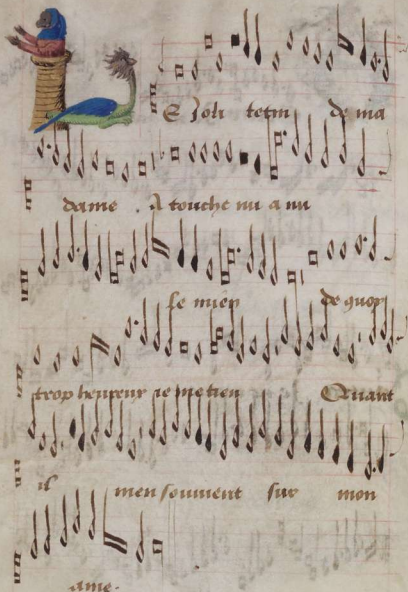 LE Joli tetin de ma
dame . A touche nu a nu
le mien de quoy
trop heureux je me tien Quant
il men souvient sur mon
ame.